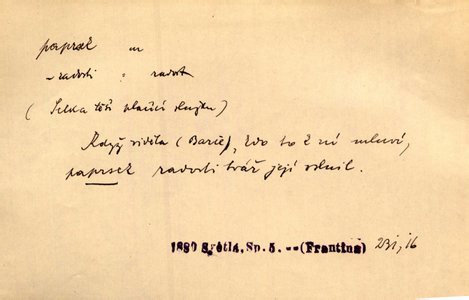 paprsek m
~ radosti : radost
(Selka těší plačící dívku)
Když viděla (Barič), kdo to z ní mluví,
paprsek radosti tvář její oslnil.
1880 Světlá, Sp. 5. -- (Frantina) 231, 16